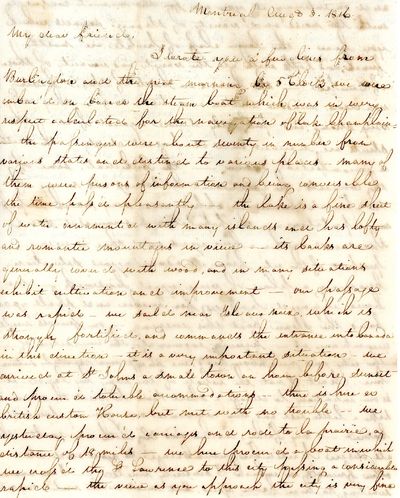 Montreal Augt 3. 1816
My dear friend,
I wrote you a few lines from
Burlington and the next morning by 5 Clock we were
on board the steam boat which was in every
respect calculated for the navigation of lake Champlain
the passengers were about seventy in number from
various states and destined to various places - many of
them were persons of information and being conversable
the time passed pleasantly - the lake is a fine sheet
of water ornamented with many islands and has lofty
and romantic mountains in view - its banks are
generally covered with wood, and in many situations
exhibit cultivation and improvement - our passage
was rapid - we sailed near Isle aux noix, which is
strongly fortified, and commands the entrance into Canada
in this direction - it is a very important situation - we
arrived at St Johns a small town an hour before sunset
and procured tolerable accommodations - there is here a
british custom House, but met with no trouble - we
yesterday procured carriages and rode to la prairie, a
distance of 18 miles - we here procured a boat in which
we crossed the St Lawrence to this city passing a considerable
rapid - the view as you approach the city is very fine